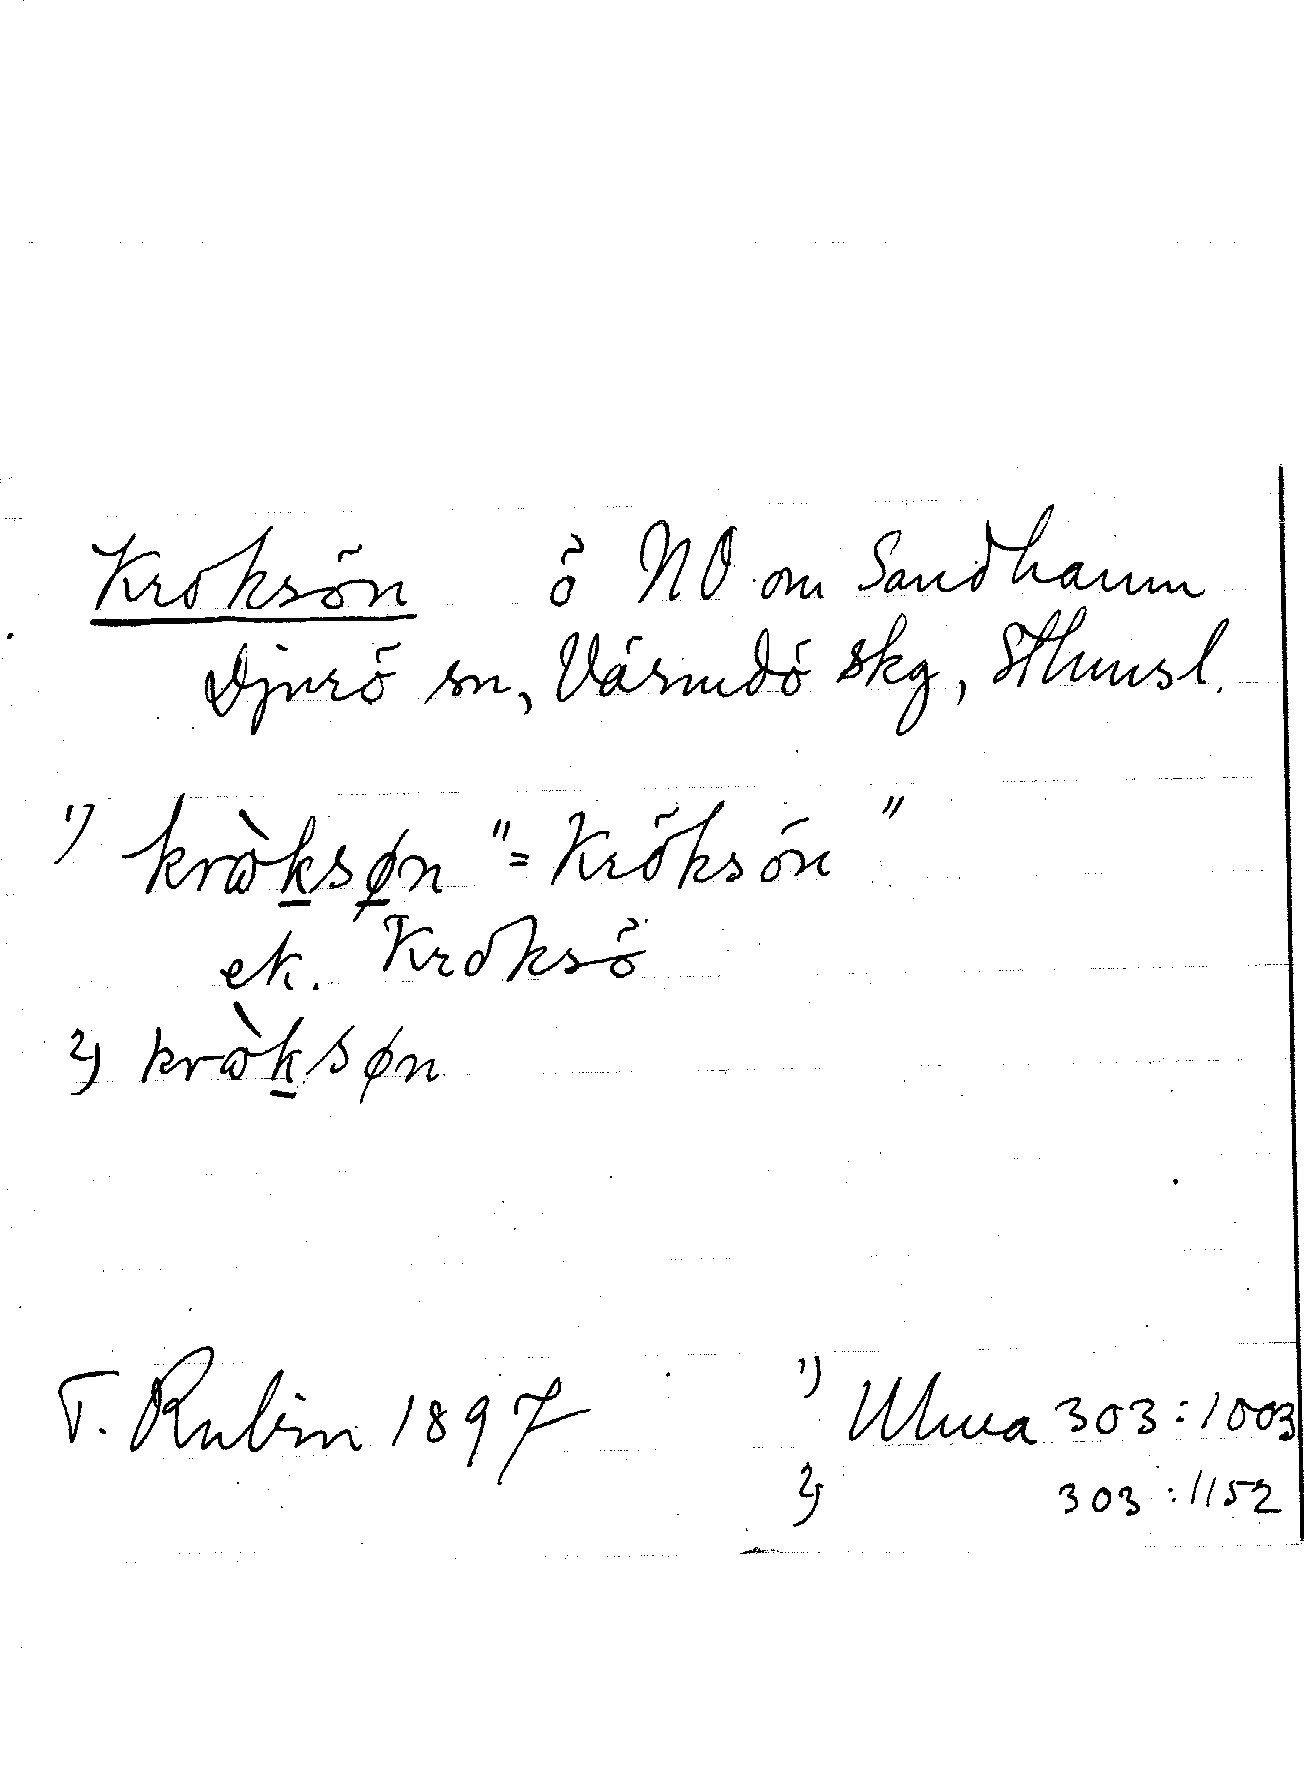 Kroksön ö NO om Sandhamn
Djurö sn, Värmdö skg, Sthmsl.
1) kròksøn "= Kröksön"
ek. Kroksö
2) kròksøn
T. Rubin 1897 1) Ulma 303:1003
2) 303:1152